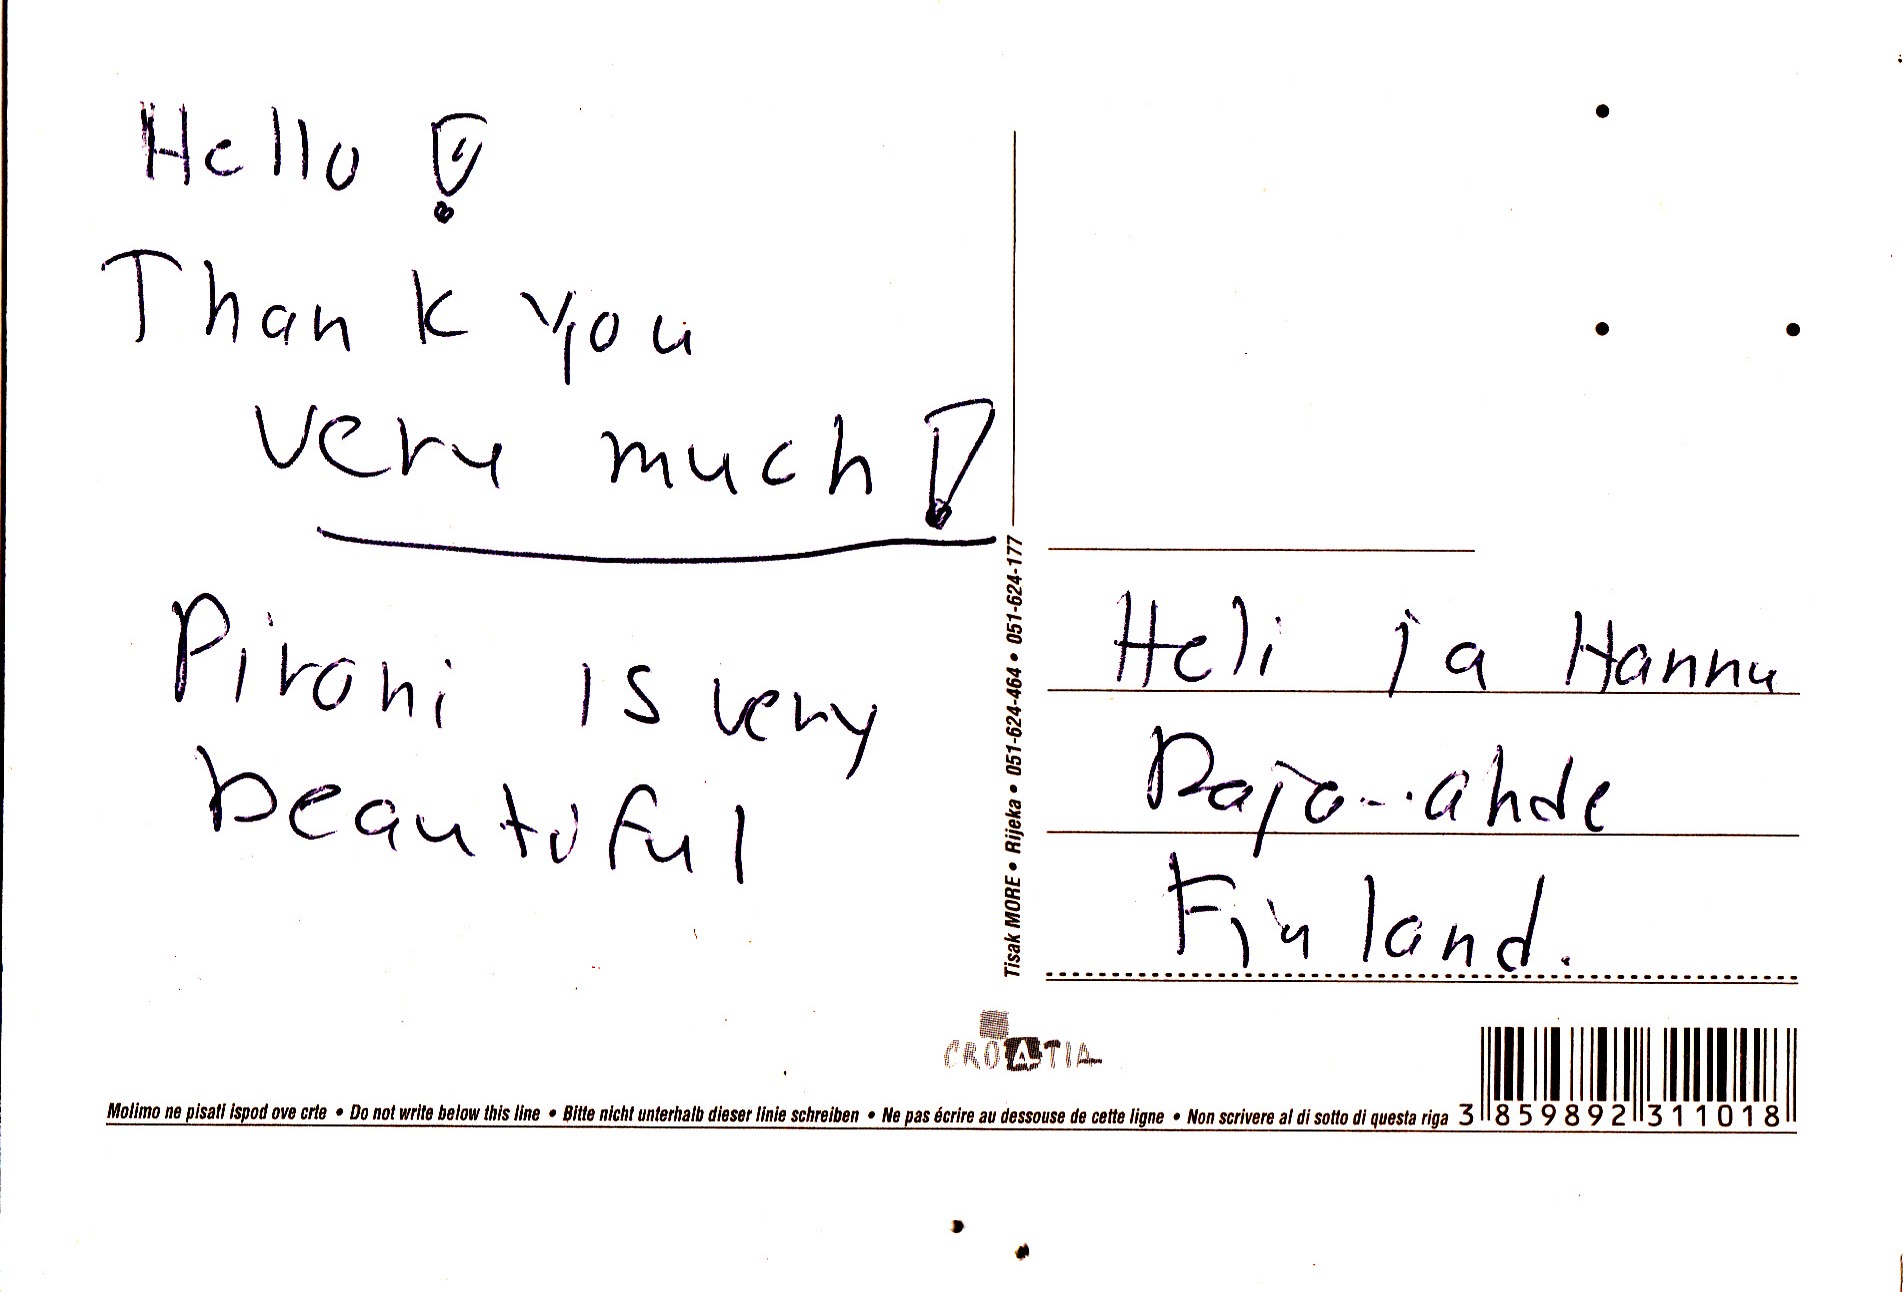 Hello!
Thank you
very much!
Pirohi is very
beautuful
Tisak MORE • Rijeka • 051-624-464 • 051-624-177
Heli ja Hannu
Rajo--ahde
Finland.
CROATIA
Molimo ne pisati ispod ove crte • Do not write below this line • Bitte nicht unterhalb dieser linie schreiben • Ne pas écrire au dessouse de cette ligne • Non scrivere al di sotto di questa riga
3 859892 311018